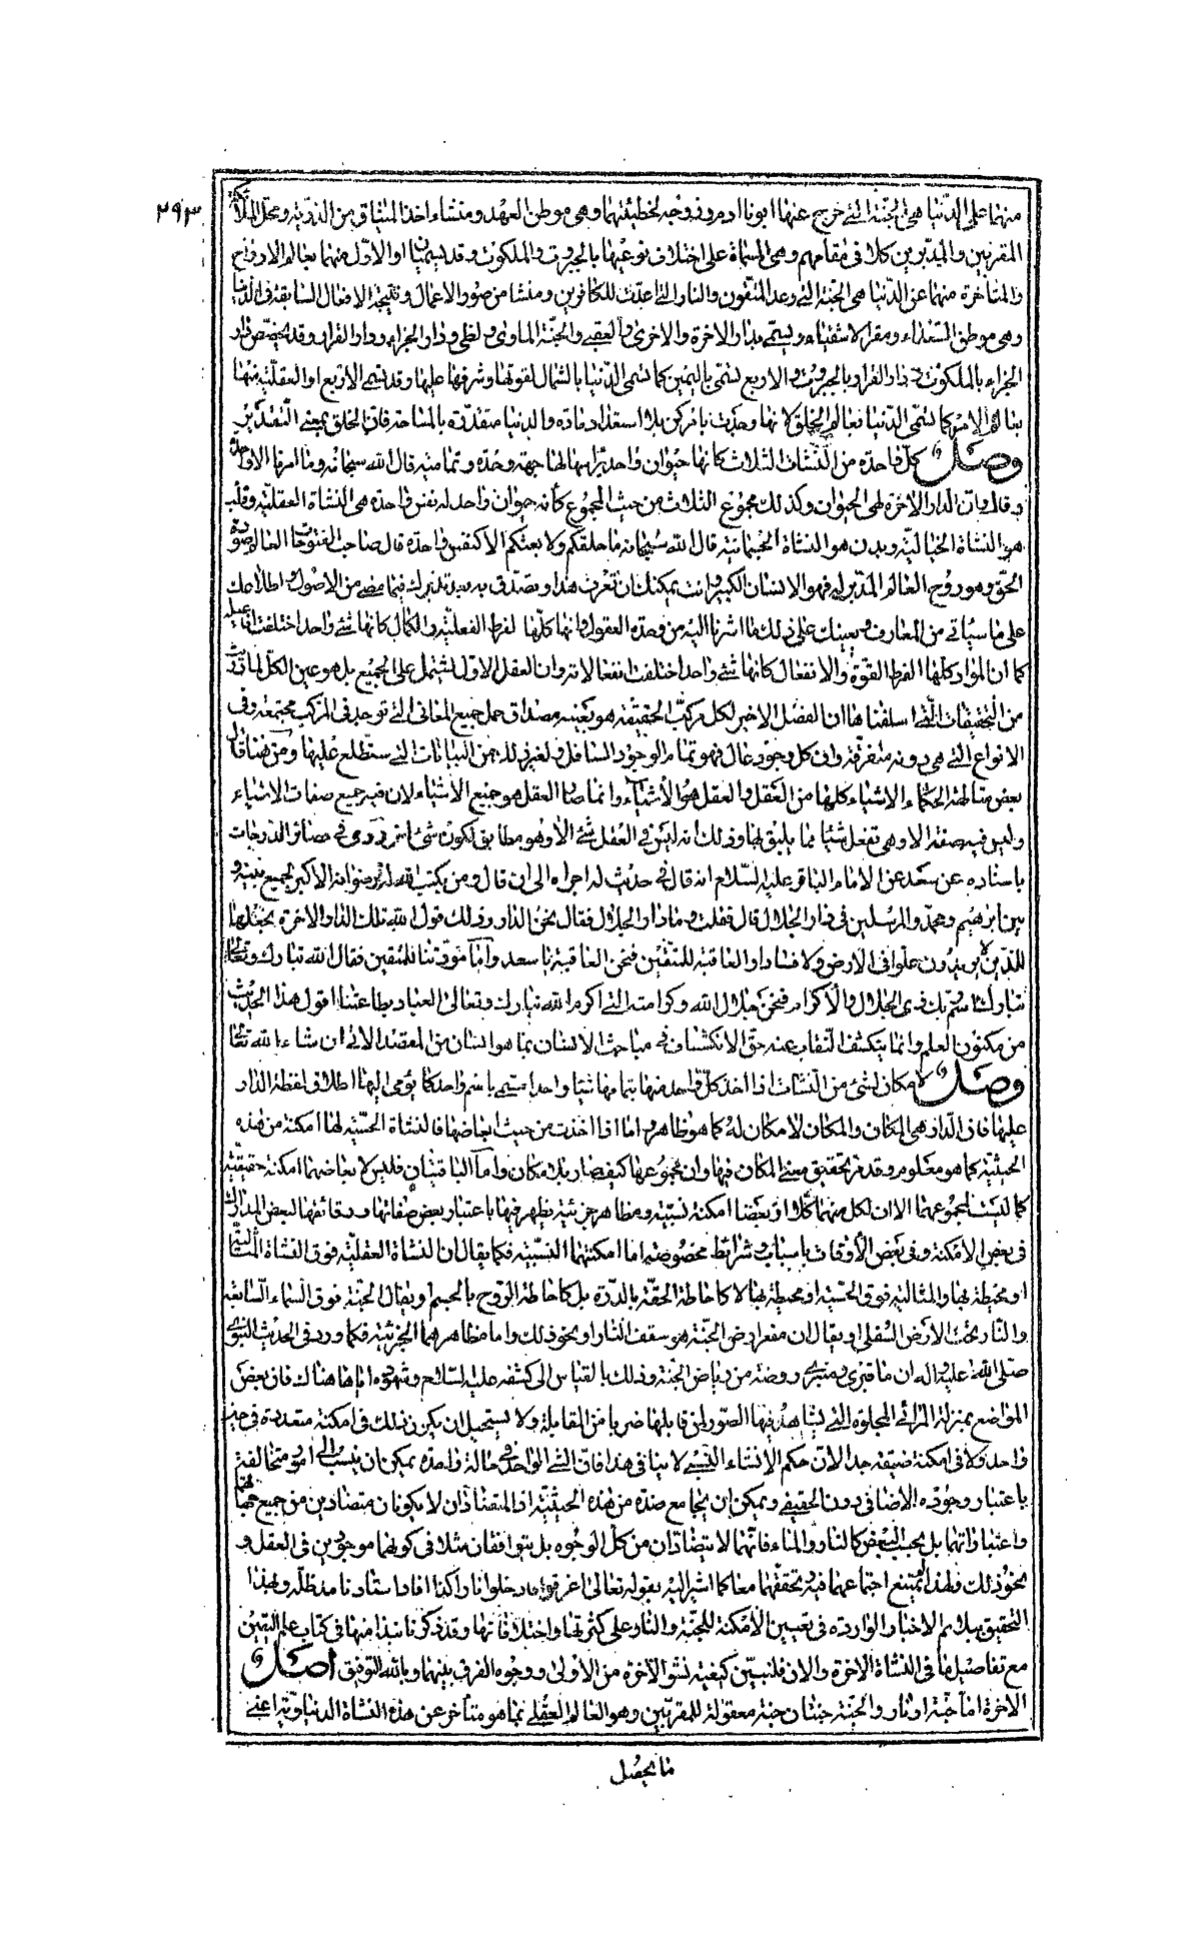 ٢٩٣
منهما على الدّنيا هى الجنّة الّتى خرج عنها ابونا ادم وزوجه لخطيئتهما وهى موطن العهد ومنشاء اخذ الميثاق من الذرّية ومحلّ الملائكة
المقربين والمدبّرين كلا فى مقامهم وهى المسماة على اختلاف نوعيها بالجبروت والملكوت وقد يسميان او الاوّل منهما بعالم الارواح
والمتاخرة منهما عن الدّنيا هى الجنّة الّتى وعد المتّقون والنار الّتى اعدّت للكافرين ومنشا من صور الاعمال ونتيجة الافعال السّابقة فى الدّنيا
وهى موطن السّعداء ومقر الاشقياء ويسمّى بدار الاخرة والاخرى والعقبى والجنّة الماوى ولظى ودار الجزاء ودار القرار وقد يخصّص دار
الجزاء بالملكوت ودار القرار بالجبروت والاربع تسمّى باليمين كما تسمى الدّنيا بالشمال لقوتها وشرفها عليها وقد تسمى الاربع او العقليّة منها
بعالم الامر كما تسمّى الدّنيا بعالم الخلق لانها وجدت بامر كن بلا استعداد مادة والدنيا متقدّرة بالمساحة فانّ الخلق بمعنى التّقدير
وصل كلّ واحدة من النّشات الثلاث كانها حيوان واحد براسها لها جهة وحدة وتمامية قال الله سبحانه وما امرنا الا واحدة
وقال وان الدار الاخرة لهى الحيوان وكذلك مجموع الثلاث من حيث المجموع كأنه حيوان واحد له نفس واحدة هى النشاة العقليّة وقلب
هو النشاة الخياليّة وبدن هو النشاة الجسمانية قال الله سبحانه ما خلقكم ولا بعثكم الا كنفس واحدة قال صاحب الفتوحات العالم صورة
الحقّ وهو روح العالم المدبّر له فهو الانسان الكبير وانت يمكنك ان تعرف هذا وتصدّق به بعد تذكرك فيما مضى من الاصول واطلاعك
على ما سياتى من المعارف ويعينك على ذلك ما اشرنا اليه من وحدة العقول وانها كلّها لفرط الفعليّة والكمال كانها شئ واحد اختلفت افاعيله
كما ان المواد كلها لفرط القوّة والانفعال كانها شئ واحد اختلفت انفعالاته وان العقل الاوّل يشتمل على الجميع بل هو عين الكلّ لما قدّمت
من التحقيقات الّتى اسلفناها ان الفصل الاخير لكل مركّب الحقيقة هو بعينه مصداق حمل جميع المعانى الّتى توجد فى المركب مجتمعة وفى
الانواع الّتى هى دونه متفرقة وان كل وجود عال فهو تمام الوجود السافل ولغير ذلك من البيانات الّتى ستطّلع عليها ومن هنا قال
بعض متالهة الحكماء الاشياء كلها من العقل والعقل هو الأشياء وانما صار العقل هو جميع الأشياء لان فيه جميع صفات الاشياء
وليس فيه صفة الا وهى تفعل شيئا مما يليق بها وذلك انه ليس فى العقل شئ الا وهو مطابق لكون شئ اخر وروى فى بصائر الدّرجات
باسناده عن سعد عن الامام الباقر عليه السّلام انه قال فى حديث له اجراه الى ان قال ومن يكتب الله له رضوانه الاكبر يجمع بينه و
بين ابرهيم ومحمّد والمرسلين فى دار الجلال قال فقلت وما دار الجلال فقال نحن الدار وذلك قول الله تلك الدار الاخرة نجعلها
للّذين لا يريدون علوّا فى الارض ولا فسادا والعاقبة للمتّقين فنحن العاقبة يا سعد وامّا مودّتنا للمتقين فقال الله تبارك وتعالى
تبارك اسم ربّك ذى الجلال والاكرام فنحن جلال الله وكرامته الّتى اكرم الله تبارك وتعالى العباد بطاعتنا اقول هذا الحديث
من مكنون العلم وانما يتكشف النّقاب عنه حقّ الانكشاف فى مباحث الانسان بما هو انسان من المقصد الاتى ان شاء الله تعالى
وصل لا مكان لشئ من النّشات اذا اخذ كلّ واحد منها بتمامها شيئا واحدا يسمى باسم واحد كما يؤمى اليها اطلاق لفظة الدار
عليها فان الدّار هى المكان والمكان لا مكان له كما هو ظاهر واما اذا اخذت من حيث ابعاضها فالنشاة الحسّيّة لها امكنة من هذه
الحيثيّة كما هو معلوم وقد مر تحقيق معنى المكان فيها وان مجموعها كيف صار بلا مكان وامّا الباقيتان فليس لابعاضهما امكنة حقيقيّة
كما ليست لمجموعهما الا ان لكل منهما كلّا او بعضا امكنة نسبيّة ومظاهر جزئية يظهر فيها باعتبار بعض صفاتها ورقائقها لبعض المدارك
فى بعض الامكنة وفى بعض الأوقات باسباب وشرائط مخصوصة اما امكنتهما النسبيّة فكما يقال ان النشاة العقليّة فوق النشاة المثاليّة
او محيطة لها والمثالية فوق الحسّية او محيطة بها لا كاحاطة الحقّة بالدّرّة بل كاحاطة الرّوح بالجسم او يقال الجنّة فوق السّماء السّابعة
والنار تحت الأرض السّفلى او يقال ان مقعر ارض الجنّة هو سقف النّار او نحو ذلك واما مظاهرهما الجزئية فكما ورد فى الحديث النّبوى
صلى الله عليه واله ان ما بين قبرى ومنبرى روضة من رياض الجنّة وذلك بالقياس الى كشفه عليه السّلام وشهوده اياها هناك فان بعض
المواضع بمنزلة المرائى المجلوّة الّتى يشاهد فيها الصّور لمن قابلها ضربا من المقابلة ولا يستحيل ان يكون ذلك فى امكنة متعددة فى حين
واحد ولا فى امكنة ضيقة جدا لان حكم الانشاء النّسبى لا ينافى هذا فان الشئ الواحد فى حالة واحدة يمكن ان ينسب الى امور متخالفة
باعتبار وجوده الاضافى دون الحقيقى ويمكن ان يجامع ضدّه من هذه الحيثيّة اذ المتضادّان لا يكونان متضادّين من جميع جهاتهما
واعتباراتهما بل بحسب البعض كالنار والماء فانّهما لا يتضادّان من كلّ الوجوه بل يتوافقان مثلا فى كونهما موجودين فى العقل و
نحو ذلك ولهذا لم يمتنع اجتماعهما فيه وتحققهما معا كما اشير اليه بقوله تعالى اغرقوا فادخلوا نارا كذا افاد استادنا مد ظلّه وبهذا
التحقيق يلائم الاخبار الواردة فى تعيين الأمكنة للجنّة والنار على كثرتها واختلافاتها وقد ذكرنا نبذا منها فى كتاب علم اليقين
مع تفاصيل ما فى النشاة الاخرة والان فلنبيّن كيفية نشو الآخرة من الأولى ووجوه الفرق بينهما وبالله التوفيق اصل
الاخرة امّا جنّة او نار والجنّة جنّتان جنة معقولة للمقرّبين وهو العالم العقلى بما هو متأخر عن هذه النشاة الدنياويّة اعنى
ما يحصل